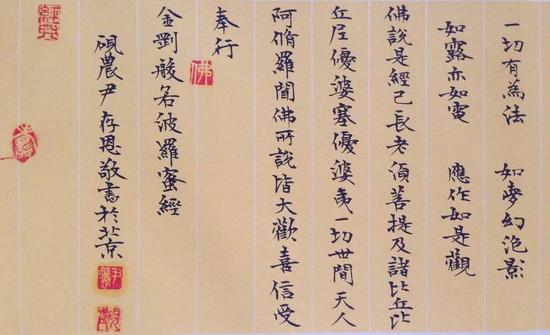 一切有為法 如夢幻泡影
如露亦如電 應作如是觀
佛說是經已長老須菩提及諸比丘比
丘尼優婆塞優婆夷一切世間天人
阿脩羅聞佛所說皆大歡喜信受
奉行
金剛般若波羅蜜經
佛
硯農尹存恩敬書於北京